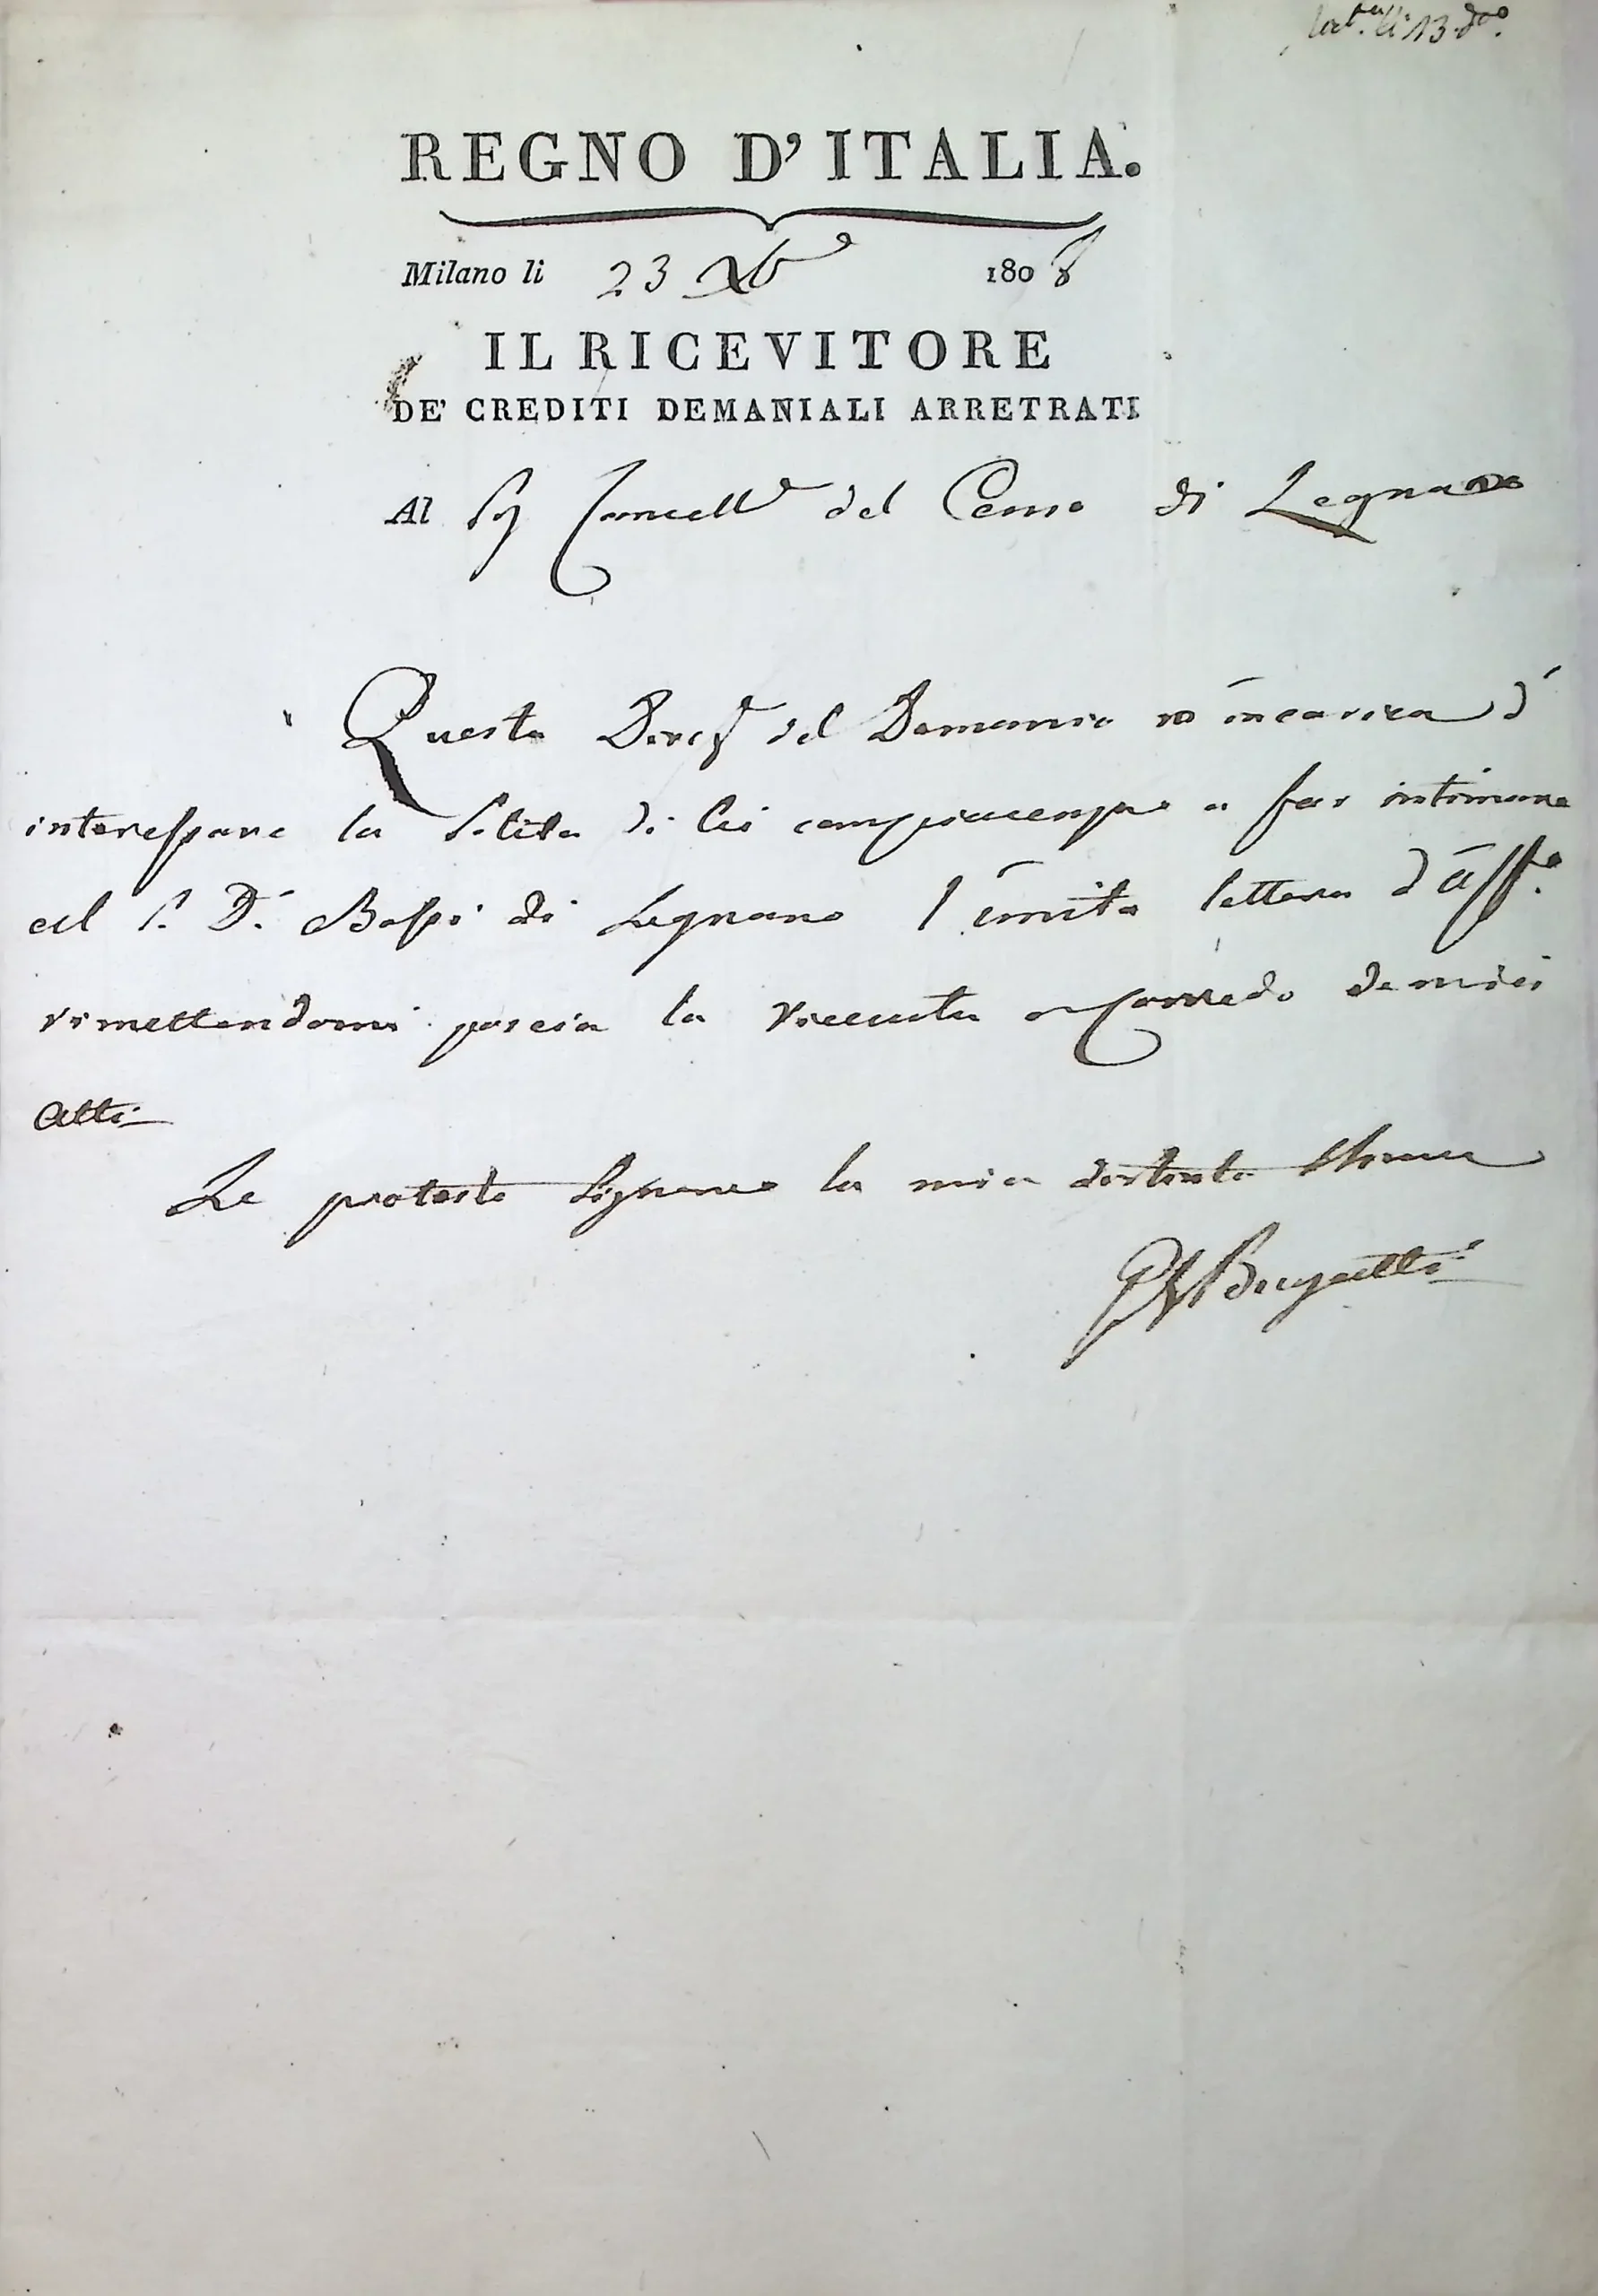 li 13 d.to
REGNO D'ITALIA.
Milano li 23 Xbre 1808
IL RICEVITORE
DE' CREDITI DEMANIALI ARRETRATI
Al Sig Cancell.e del Censo di Legnano
Questa Direz.e del Demanio m'incarica d'
interessare la solita di lei compiacenza a far intimare
al S. D. Bossi di Legnano l'unita lettera d'Uff.o
rimettendomi poscia la ricevuta a Corredo de miei
Atti
Le protesto Signore la mia distinta Stima
Bugatti